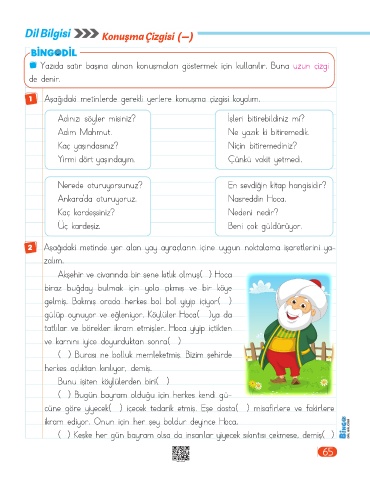 Dil Bilgisi Konuşma Çizgisi (—)
BİNGODİL
Yazıda satır başına alınan konuşmaları göstermek için kullanılır. Buna uzun çizgi
de denir.
1 Aşağıdaki metinlerde gerekli yerlere konuşma çizgisi koyalım.
Adınızı söyler misiniz?
Adım Mahmut.
Kaç yaşındasınız?
Yirmi dört yaşındayım.
İşleri bitirebildiniz mi?
Ne yazık ki bitiremedik.
Niçin bitiremediniz?
Çünkü vakit yetmedi.
Nerede oturuyorsunuz?
Ankara'da oturuyoruz.
Kaç kardeşsiniz?
Üç kardeşiz.
En sevdiğin kitap hangisidir?
Nasreddin Hoca.
Nedeni nedir?
Beni çok güldürüyor.
2 Aşağıdaki metinde yer alan yay ayraçların içine uygun noktalama işaretlerini ya-
zalım.
Akşehir ve civarında bir sene kıtlık olmuş( ) Hoca
biraz buğday bulmak için yola çıkmış ve bir köye
gelmiş. Bakmış orada herkes bol bol yiyip içiyor( )
gülüp oynuyor ve eğleniyor. Köylüler Hoca( )ya da
tatlılar ve börekler ikram etmişler. Hoca yiyip içtikten
ve karnını iyice doyurduktan sonra( )
( ) Burası ne bolluk memleketmiş. Bizim şehirde
herkes açlıktan kırılıyor, demiş.
Bunu işiten köylülerden biri( )
( ) Bugün bayram olduğu için herkes kendi gü-
cüne göre yiyecek( ) içecek tedarik etmiş. Eşe dosta( ) misafirlere ve fakirlere
ikram ediyor. Onun için her şey boldur deyince Hoca,
( ) Keşke her gün bayram olsa da insanlar yiyecek sıkıntısı çekmese, demiş( )
65